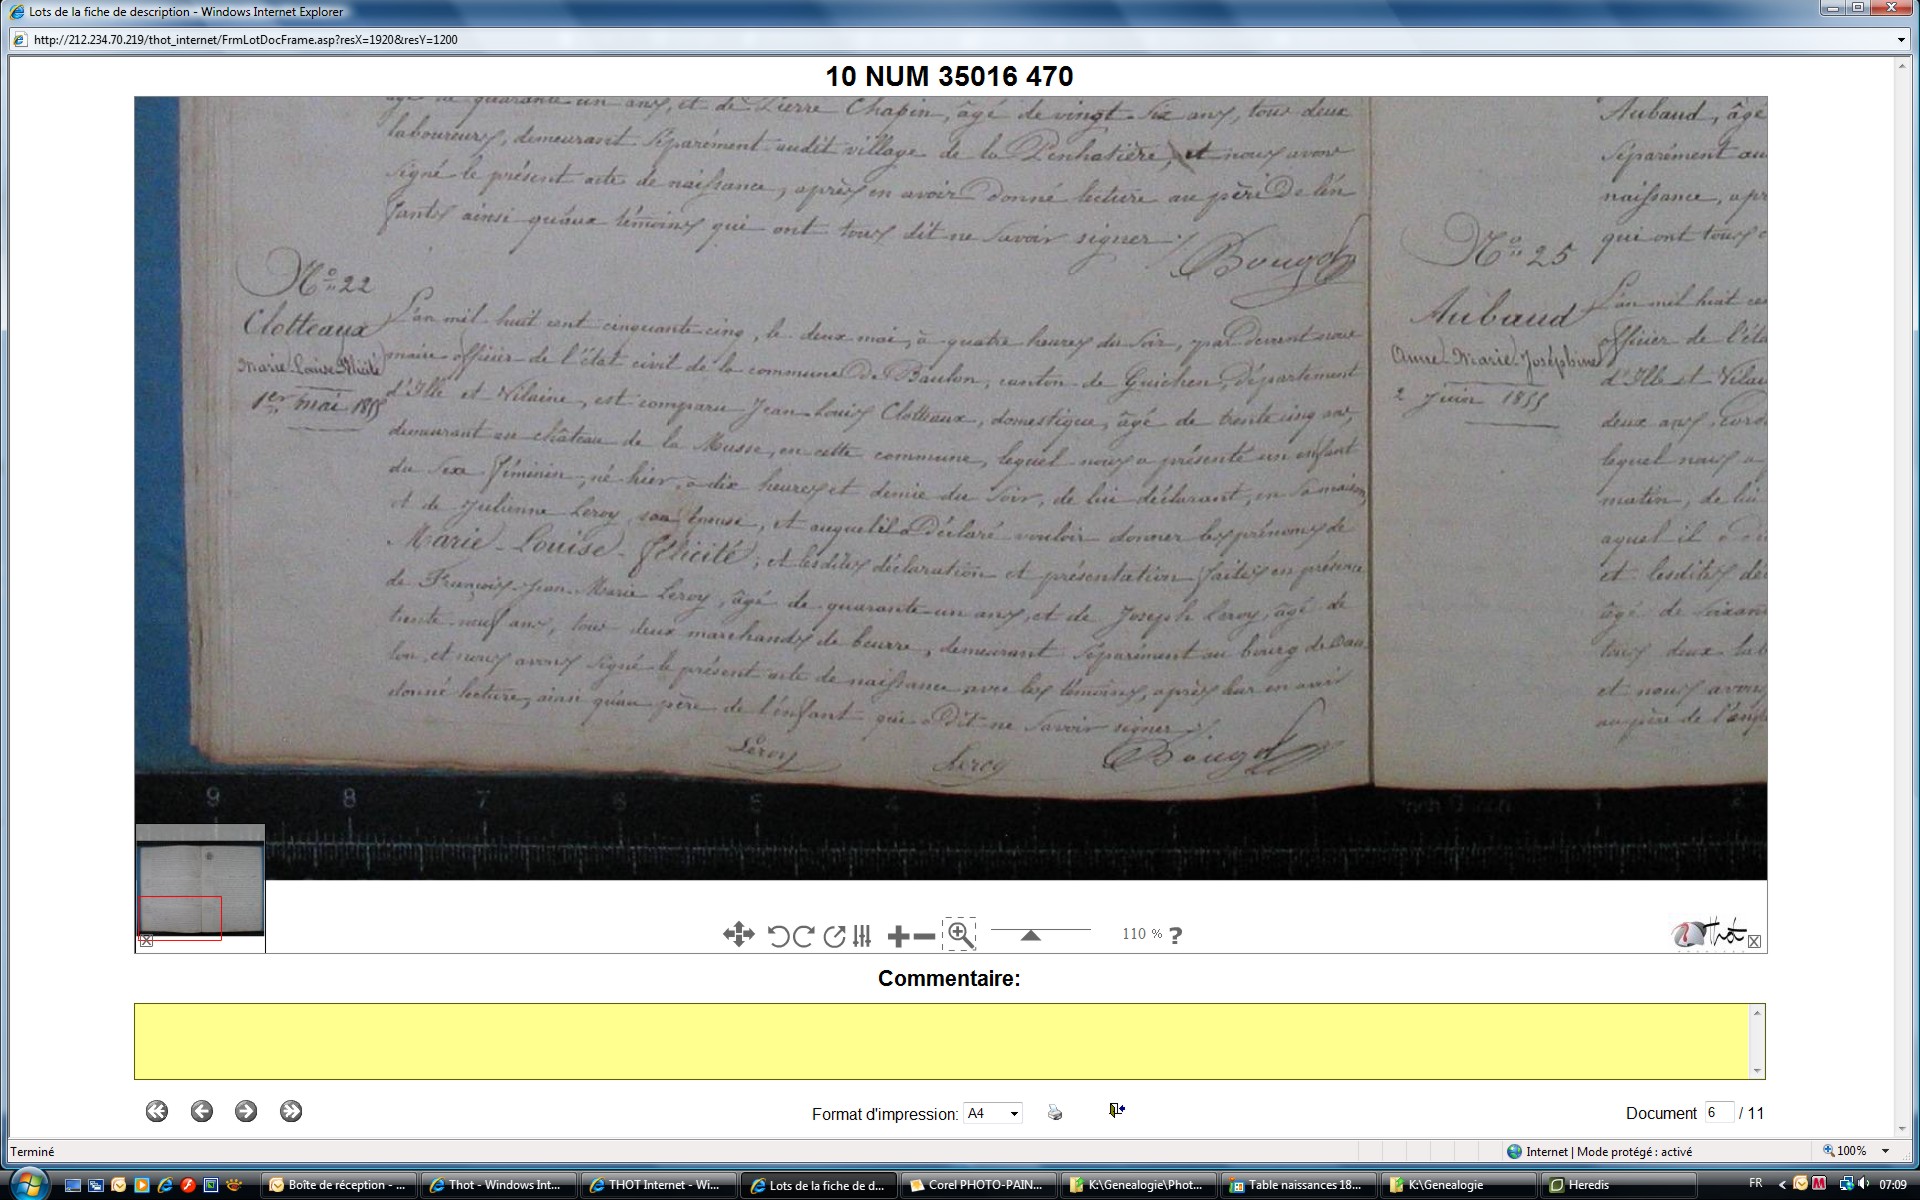 Lots de la fiche de description - Windows Internet Explorer
http://212.234.70.219/thot_internet/FrmLotDocFrame.asp?resX=1920&resY=1200
10 NUM 35016 470
quarante un ans, et de Pierre Chapin, âgé de vingt six ans, tous deux
laboureurs, demeurant séparément audit village de la Penhatière, et nous avons
signé le présent acte de naissance, après en avoir donné lecture au père De l'en
fants ainsi qu'aux témoins qui ont tous dit ne savoir signer ./.
Bougot
No 22
Clotteaux
Marie-Louise-Félicité
1er mai 1855
L'an mil huit cent cinquante cinq, le deux mai, à quatre heures du soir, par Devant nous
maire officier de l'état civil de la commune De Baulon, canton de Guichen, département
d'Ille et Vilaine, est comparu Jean Louis Clotteaux, domestique, âgé de trente cinq ans,
demeurant au château de la Musse, en cette commune, lequel nous a présenté un enfant
du sexe féminin, né hier, à dix heures et demie du soir, de lui déclarant, en sa maison,
et de Julienne Leroy son épouse, et auquel il a Déclaré vouloir donner les prénoms de
Marie-Louise-Félicité, et lesdites déclaration et présentation faites en présence
de François-Jean-Marie Leroy, âgé de quarante-un ans, et de Joseph Leroy, âgé de
trente-neuf ans, tous deux marchands de beurre, demeurant séparément au bourg de Bau
lon, et nous avons signé le présent acte de naissance avec les témoins, après leur en avoir
donné lecture, ainsi qu'au père de l'enfant qui a Dit ne savoir signer ./.
Leroy
Leroy
Bougot
Aubaud, âgé
séparément au
naissance, apr
qui ont tous
No 25
Aubaud
Anne-Marie-Joséphine
2 juin 1855
L'an mil huit ce
officier de l'éta
d'Ille et Vilai
deux ans,
lequel nous a
matin, de lui
auquel il a
et lesdites dé
âgé de soixan
tous deux lab
et nous avons
au père de l'enf
9 8 7 6 5 4 3 2 1 1 2
110 % ?
Thot
Commentaire:
Format d'impression: A4
Document 6 / 11
Terminé
Internet | Mode protégé : activé
100%
Boîte de réception - ...
Thot - Windows Int...
THOT Internet - Wi...
Lots de la fiche de d...
Corel PHOTO-PAIN...
K:\Genealogie\Phot...
Table naissances 18...
K:\Genealogie
Heredis
FR
07:09